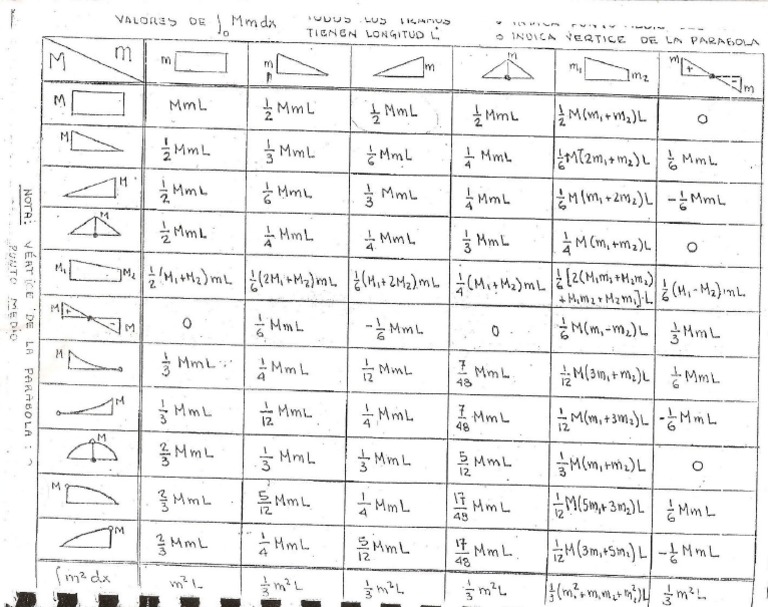 VALORES DE ∫₀ᴸ Mm dx TODOS LOS TRAMOS
TIENEN LONGITUD L. o INDICA VERTICE DE LA PARABOLA
M m m m m m m₁ m₂ m + - m
M MmL 1/2 MmL 1/2 MmL 1/2 MmL 1/2 M(m₁+m₂)L 0
M 1/2 MmL 1/3 MmL 1/6 MmL 1/4 MmL 1/6 M(2m₁+m₂)L 1/6 MmL
M 1/2 MmL 1/6 MmL 1/3 MmL 1/4 MmL 1/6 M(m₁+2m₂)L -1/6 MmL
M 1/2 MmL 1/4 MmL 1/4 MmL 1/3 MmL 1/4 M(m₁+m₂)L 0
M₁ M₂ 1/2 (M₁+M₂)mL 1/6 (2M₁+M₂)mL 1/6 (M₁+2M₂)mL 1/4 (M₁+M₂)mL 1/6 [2(M₁m₁+M₂m₂)+M₁m₂+M₂m₁]·L 1/6 (M₁-M₂)mL
M + - M 0 1/6 MmL -1/6 MmL 0 1/6 M(m₁-m₂)L 1/3 MmL
M 1/3 MmL 1/4 MmL 1/12 MmL 7/48 MmL 1/12 M(3m₁+m₂)L 1/6 MmL
M 1/3 MmL 1/12 MmL 1/4 MmL 7/48 MmL 1/12 M(m₁+3m₂)L -1/6 MmL
M 2/3 MmL 1/3 MmL 1/3 MmL 5/12 MmL 1/3 M(m₁+m₂)L 0
M 2/3 MmL 5/12 MmL 1/4 MmL 17/48 MmL 1/12 M(5m₁+3m₂)L 1/6 MmL
M 2/3 MmL 1/4 MmL 5/12 MmL 17/48 MmL 1/12 M(3m₁+5m₂)L -1/6 MmL
∫m² dx m²L 1/3 m²L 1/3 m²L 1/3 m²L 1/3 (m₁²+m₁m₂+m₂²)L 1/3 m²L
NOTA: VÉRTICE DE LA PARABOLA:
PUNTO MEDIO